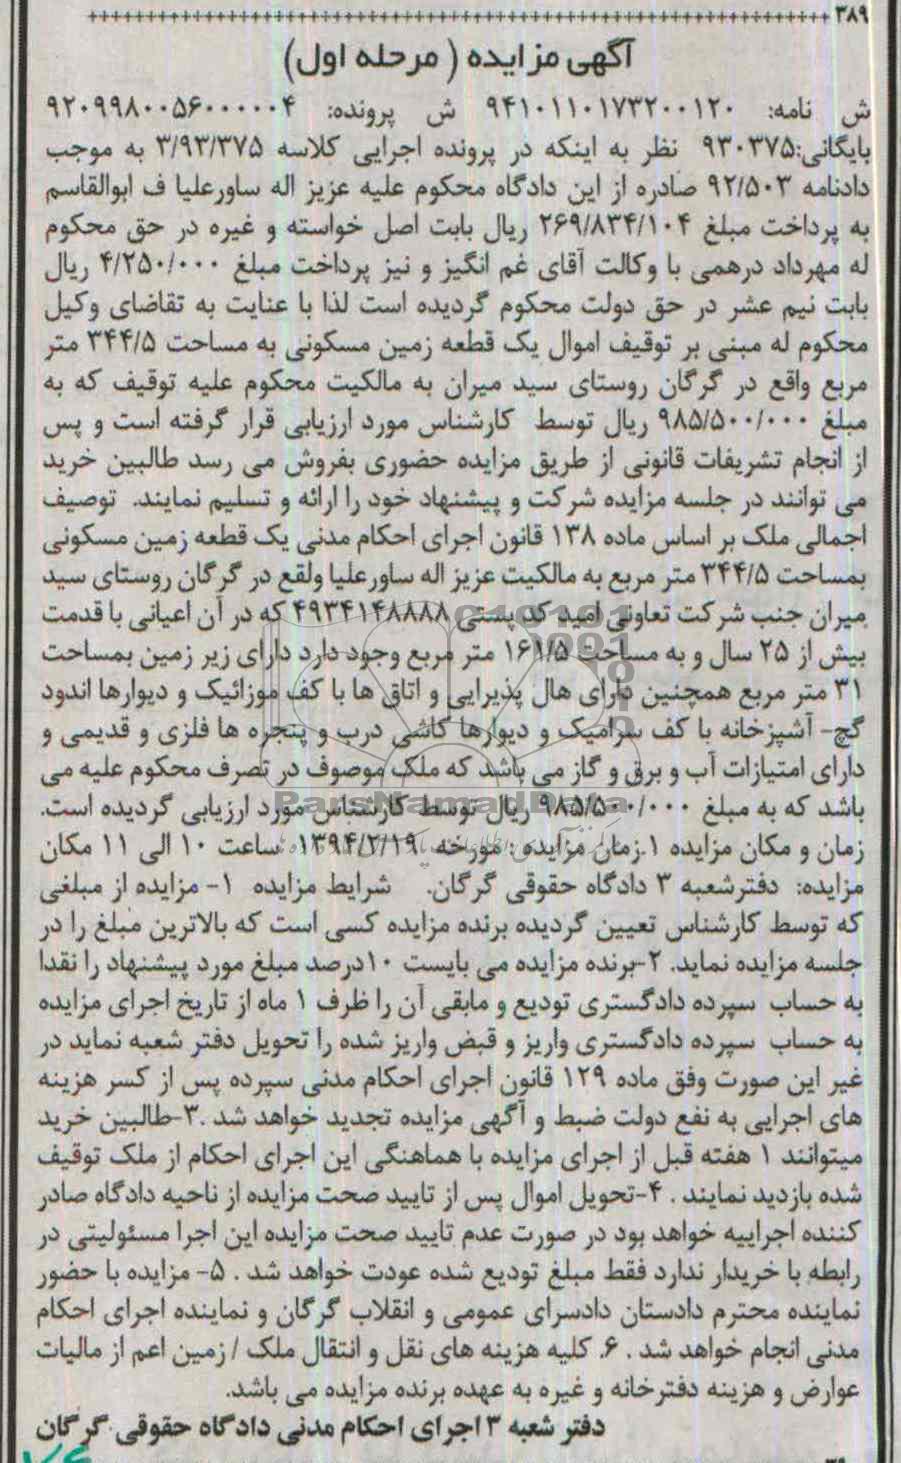 ۳۸۹
آگهی مزایده ( مرحله اول)
ش نامه: ۹۴۱۰۱۱۰۱۷۳۲۰۰۱۲۰ ش پرونده: ۹۲۰۹۹۸۰۰۵۶۰۰۰۰۰۴
بایگانی:۹۳۰۳۷۵ نظر به اینکه در پرونده اجرایی کلاسه ۳/۹۳/۳۷۵ به موجب
دادنامه ۹۲/۵۰۳ صادره از این دادگاه محکوم علیه عزیز اله ساورعلیا ف ابوالقاسم
به پرداخت مبلغ ۲۶۹/۸۳۴/۱۰۴ ریال بابت اصل خواسته و غیره در حق محکوم
له مهرداد درهمی با وکالت آقای غم انگیز و نیز پرداخت مبلغ ۴/۲۵۰/۰۰۰ ریال
بابت نیم عشر در حق دولت محکوم گردیده است لذا با عنایت به تقاضای وکیل
محکوم له مبنی بر توقیف اموال یک قطعه زمین مسکونی به مساحت ۳۴۴/۵ متر
مربع واقع در گرگان روستای سید میران به مالکیت محکوم علیه توقیف که به
مبلغ ۹۸۵/۵۰۰/۰۰۰ ریال توسط کارشناس مورد ارزیابی قرار گرفته است و پس
از انجام تشریفات قانونی از طریق مزایده حضوری بفروش می رسد طالبین خرید
می توانند در جلسه مزایده شرکت و پیشنهاد خود را ارائه و تسلیم نمایند. توصیف
اجمالی ملک بر اساس ماده ۱۳۸ قانون اجرای احکام مدنی یک قطعه زمین مسکونی
بمساحت ۳۴۴/۵ متر مربع به مالکیت عزیز اله ساورعلیا ولقع در گرگان روستای سید
میران جنب شرکت تعاونی امید کد پستی ۴۹۳۴۱۴۸۸۸۸ که در آن اعیانی با قدمت
بیش از ۲۵ سال و به مساحت ۱۶۱/۵ متر مربع وجود دارد دارای زیر زمین بمساحت
۳۱ متر مربع همچنین دارای هال پذیرایی و اتاق ها با کف موزائیک و دیوارها اندود
گچ- آشپزخانه با کف سرامیک و دیوارها کاشی درب و پنجره ها فلزی و قدیمی و
دارای امتیازات آب و برق و گاز می باشد که ملک موصوف در تصرف محکوم علیه می
باشد که به مبلغ ۹۸۵/۵۰۰/۰۰۰ ریال توسط کارشناس مورد ارزیابی گردیده است.
ParsNamadData
زمان و مکان مزایده ۱.زمان مزایده : مورخه ۱۳۹۴/۲/۱۹ ساعت ۱۰ الی ۱۱ مکان
مزایده: دفترشعبه ۳ دادگاه حقوقی گرگان. شرایط مزایده ۱- مزایده از مبلغی
که توسط کارشناس تعیین گردیده برنده مزایده کسی است که بالاترین مبلغ را در
جلسه مزایده نماید. ۲-برنده مزایده می بایست ۱۰درصد مبلغ مورد پیشنهاد را نقدا
به حساب سپرده دادگستری تودیع و مابقی آن را ظرف ۱ ماه از تاریخ اجرای مزایده
به حساب سپرده دادگستری واریز و قبض واریز شده را تحویل دفتر شعبه نماید در
غیر این صورت وفق ماده ۱۲۹ قانون اجرای احکام مدنی سپرده پس از کسر هزینه
های اجرایی به نفع دولت ضبط و آگهی مزایده تجدید خواهد شد .۳-طالبین خرید
میتوانند ۱ هفته قبل از اجرای مزایده با هماهنگی این اجرای احکام از ملک توقیف
شده بازدید نمایند . ۴-تحویل اموال پس از تایید صحت مزایده از ناحیه دادگاه صادر
کننده اجراییه خواهد بود در صورت عدم تایید صحت مزایده این اجرا مسئولیتی در
رابطه با خریدار ندارد فقط مبلغ تودیع شده عودت خواهد شد . ۵- مزایده با حضور
نماینده محترم دادستان دادسرای عمومی و انقلاب گرگان و نماینده اجرای احکام
مدنی انجام خواهد شد . ۶. کلیه هزینه های نقل و انتقال ملک / زمین اعم از مالیات
عوارض و هزینه دفترخانه و غیره به عهده برنده مزایده می باشد.
دفتر شعبه ۳ اجرای احکام مدنی دادگاه حقوقی گرگان